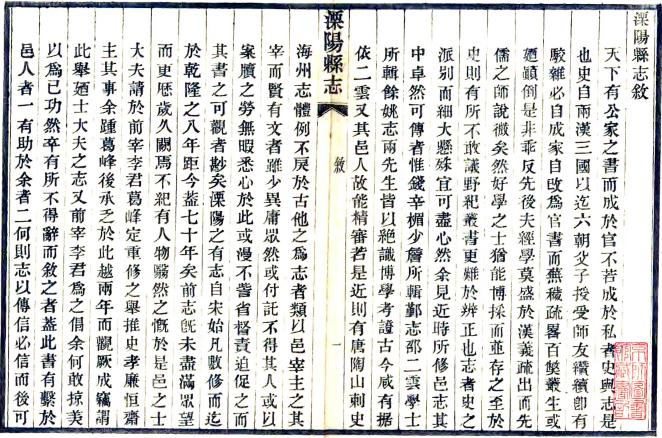 溧陽縣志敘
天下有公家之書而成於官不若成於私者史與志是
也史自兩漢三國以迄六朝父子授受師友纘續卽有
駮雜必自成家自改爲官書而蕪穢疏畧百叢生或
廼顚倒是非乖反先後夫經學莫盛於漢義疏出而先
儒之師說微矣然好學之士猶能博採而並存之至於
史則有所不敢議野叢書更難於辨正也志者史之
派别而細大懸殊宜可盡心然余見近時所修邑志其
中卓然可傳者惟錢辛楣少詹所輯鄞志邵二雲學士
所輯餘姚志兩先生皆以絶識博學考證古今咸有據
依二雲又其邑人故能精審若是近則有唐陶山刺史
溧陽縣志
敘
一
海州志體例不戾於古他之爲志者類以邑宰主之其
宰而賢有文者雖少異庸眾然或付託不得其人或以
案牘之勞無暇悉心於此或漫不訾省督責迫促之而
其書之可觀者尠矣溧陽之有志自宋始凡數修而迄
於乾隆之八年距今葢七十年矣前志旣未盡滿眾望
而更歷歲久闕焉不紀有人物翳然之慨於是邑之士
大夫請於前宰李君葛峰定重修之舉推史孝廉恒齋
主其事余踵葛峰後承乏於此越兩年而觀厥成竊謂
此舉廼士大夫之志又前宰李君爲之倡余何敢掠美
以爲已功然卒有所不得辭而敘之者葢此書有繫於
邑人者一有助於余者二何則志以傳信必信而後可